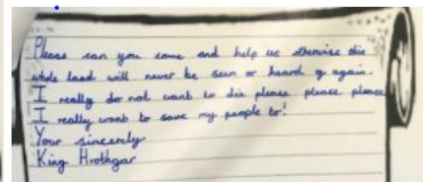 Please can you come and help us otherwise this
whole land will never be seen or heard of again.
I really do not want to die please please please
I really want to save my people to!
Your sincerely
King Hrothgar